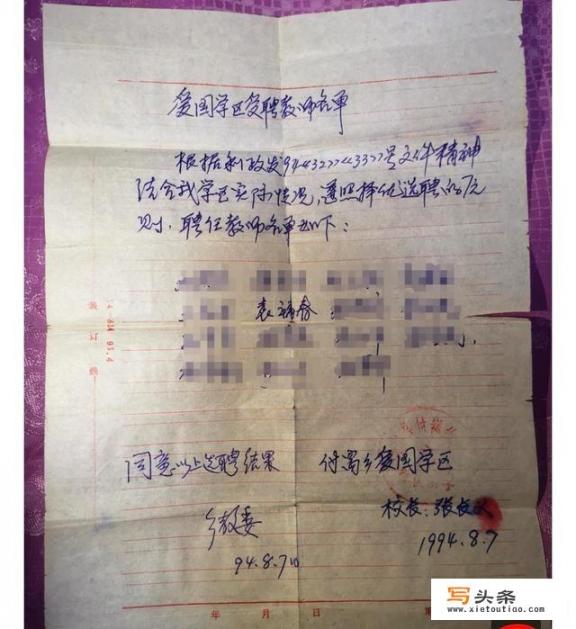 爱国学区受聘教师名单
根据利政发94<32><33>号文件精神
结合我学区实际情况,遵照择优选聘的原
则,聘任教师名单如下:
袁福春
同意以上选聘结果
付窝乡爱国学区
乡教委
校长:张长文
94.8.7日
1994.8.7
装订线
93.4
年 月 日 第
写头条
www.xietoutiao.com